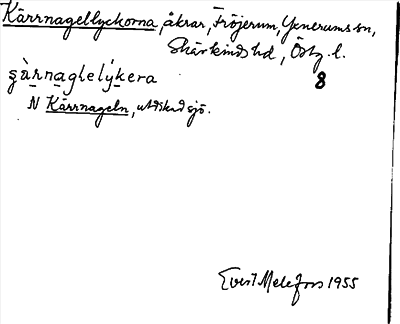 Kärrnagellyckorna, åkrar, Fröjerum, Yxnerums sn,
Skärkinds hd, Östg. l.
şàrnaglelýkera 8
N Kärrnageln, utdikad sjö.
Evert Melefors 1955